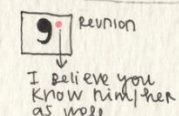 Reunion
I Believe you
know him/her
as well